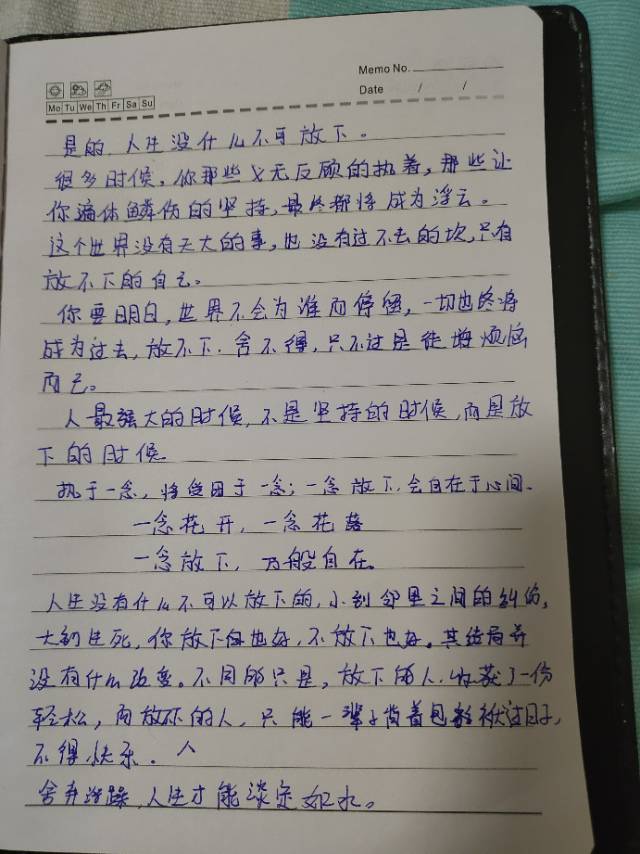 Memo No.
Mo Tu We Th Fr Sa Su
Date / /
是的,人生没什么不可放下。
很多时候,你那些义无反顾的执着,那些让
你遍体鳞伤的坚持,最终都将成为浮云。
这个世界没有天大的事,也没有过不去的坎,只有
放不下的自己。
你要明白,世界不会为谁而停留,一切也终将
成为过去,放不下.舍不得,只不过是徒增烦恼
而已。
人最强大的时候,不是坚持的时候,而是放
下的时候
执于一念,将受困于一念;一念放下.会自在于心间.
一念花开,一念花落
一念放下,万般自在。
人生没有什么不可以放下的,小到邻里之间的纠纷,
大到生死,你放下也好,不放下也好。其结局并
没有什么改变。不同的只是,放下的人.收获了一份
轻松,而放不下的人,只能一辈子背着包袱过日子,
不得快乐.人
舍弃浮躁,人生才能淡定如水。